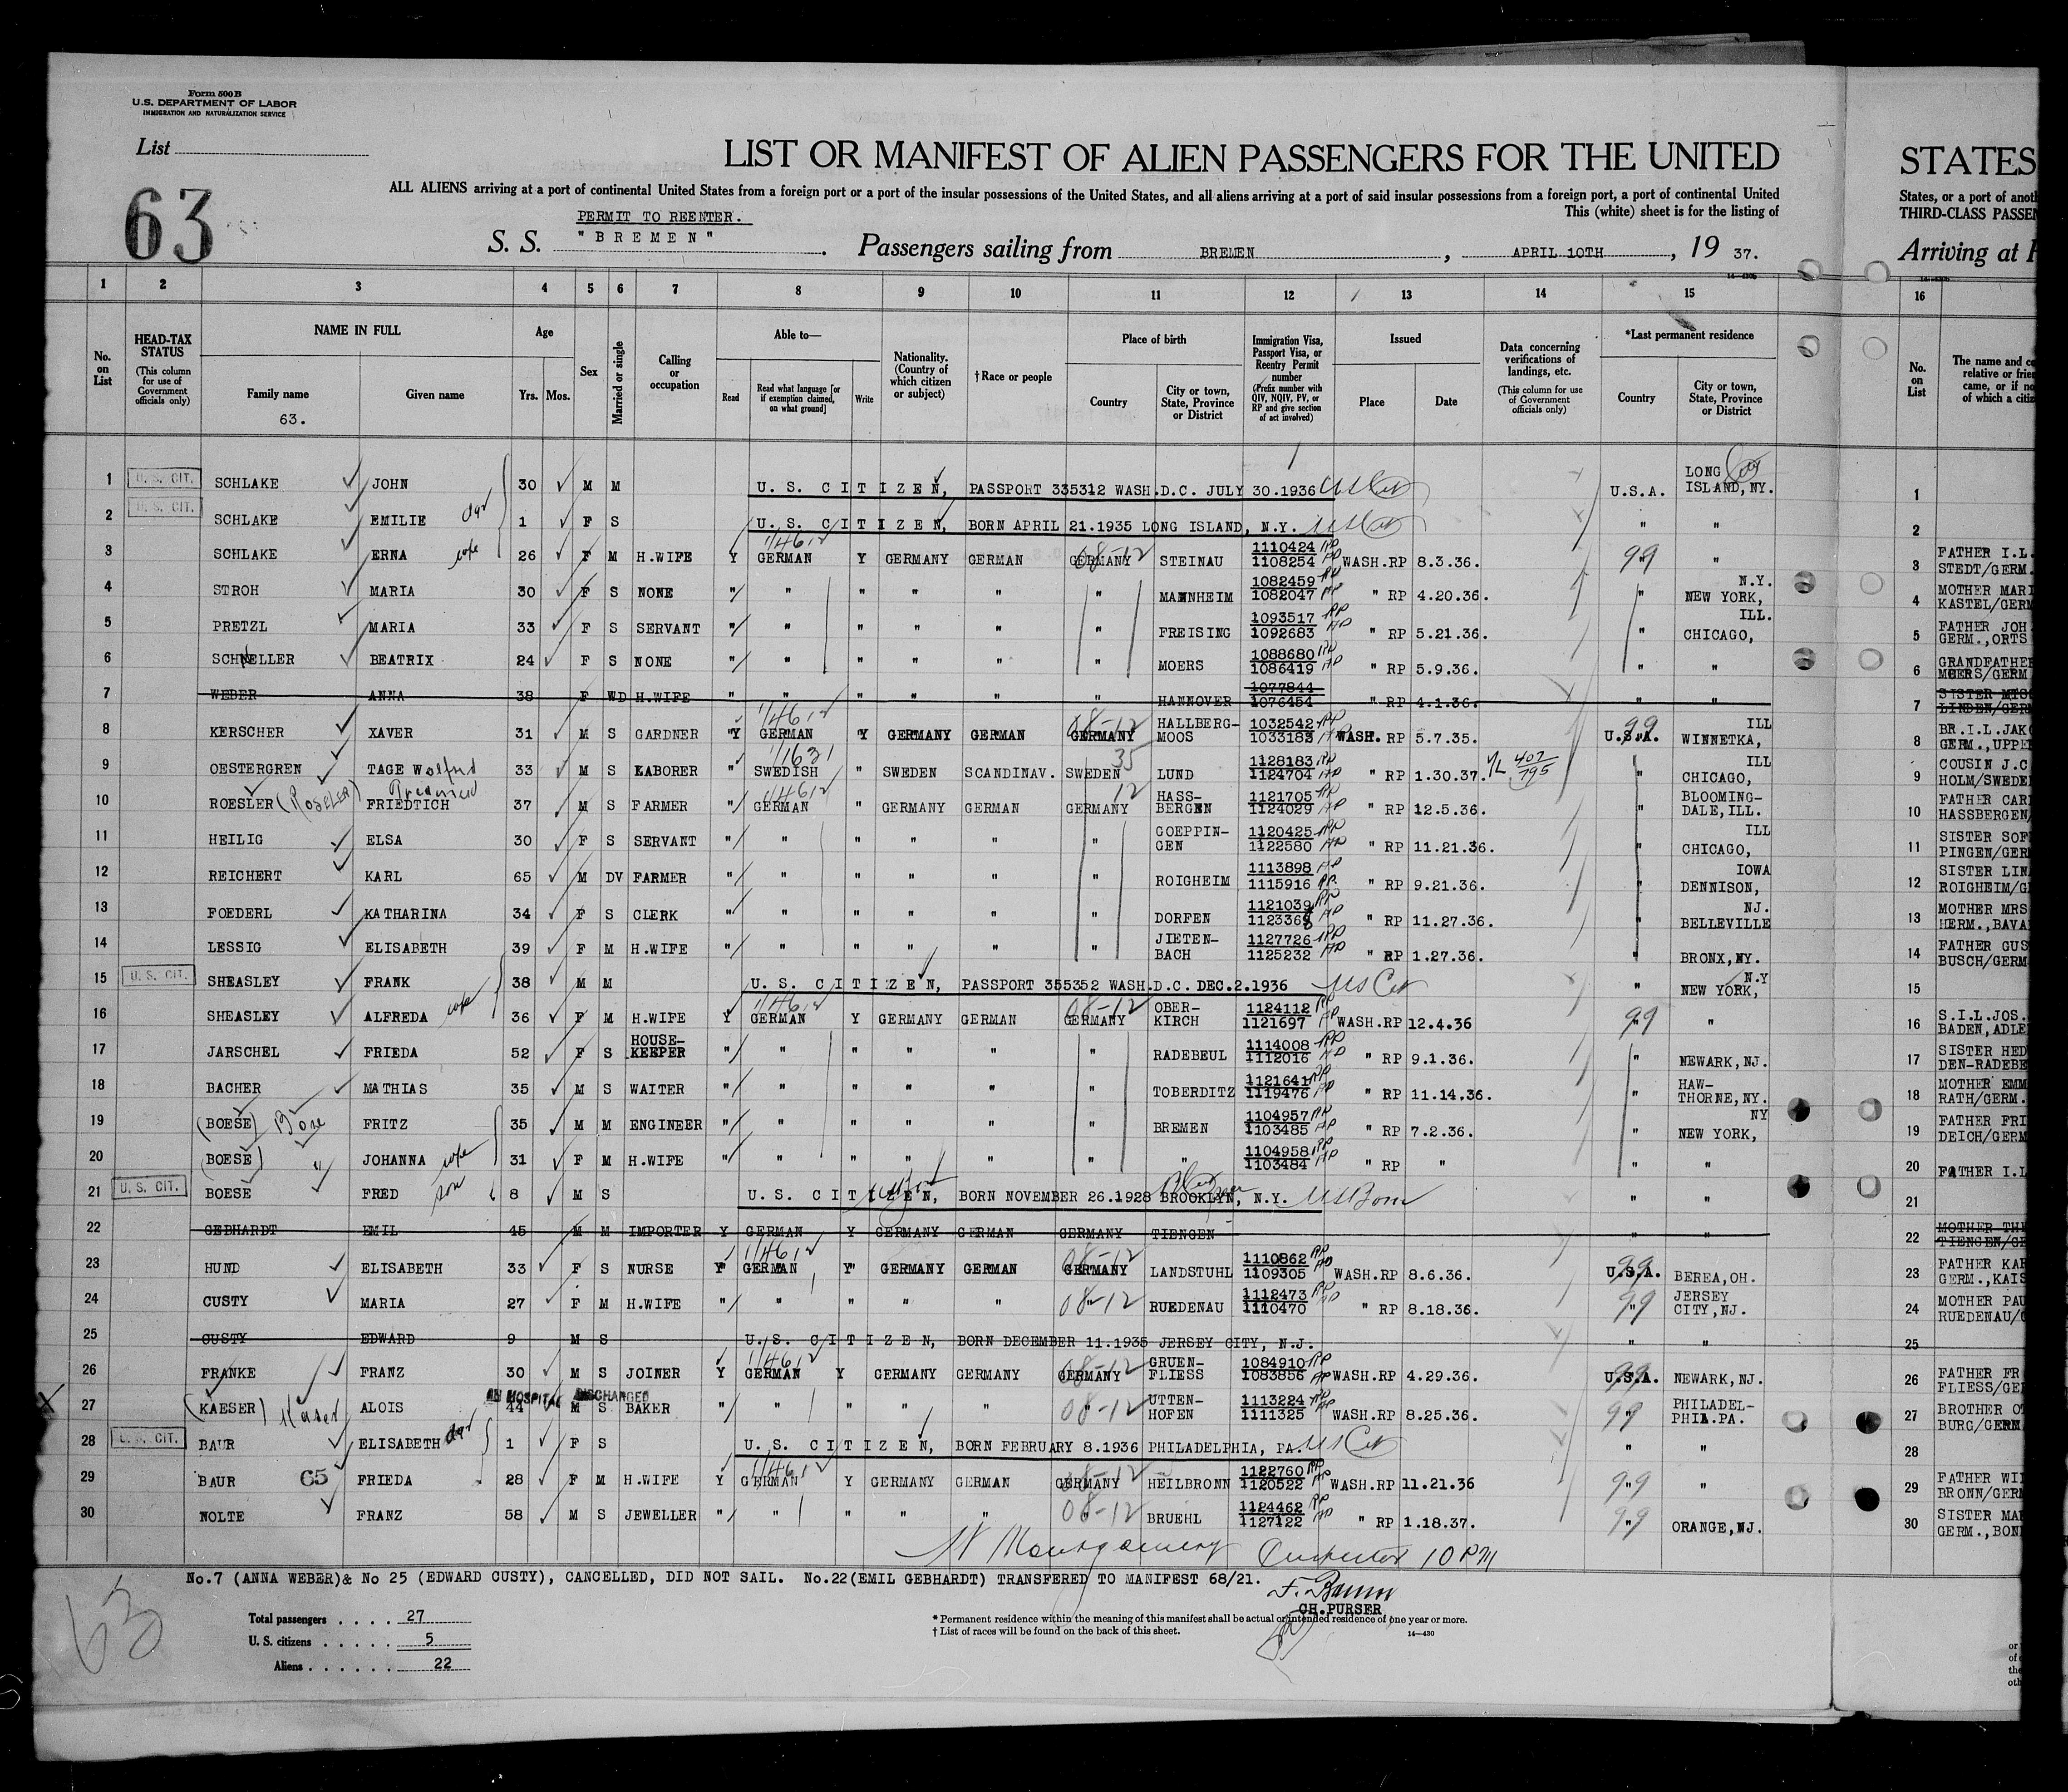 Form 500 B
U.S. DEPARTMENT OF LABOR
IMMIGRATION AND NATURALIZATION SERVICE
List
63
LIST OR MANIFEST OF ALIEN PASSENGERS FOR THE UNITED
STATES
ALL ALIENS arriving at a port of continental United States from a foreign port or a port of the insular possessions of the United States, and all aliens arriving at a port of said insular possessions from a foreign port, a port of continental United
States, or a port of anot
PERMIT TO REENTER.
This (white) sheet is for the listing of
THIRD-CLASS PASSEN
S. S. "BREMEN". Passengers sailing from BREMEN, APRIL 10TH, 19 37.
Arriving at
14-430
1 2 3 4 5 6 7 8 9 10 11 12 13 14 15 16
No. on List
HEAD-TAX STATUS (This column for use of Government officials only)
NAME IN FULL
Family name
63.
Given name
Age
Yrs. Mos.
Sex
Married or single
Calling or occupation
Able to—
Read
Read what language [or if exemption claimed, on what ground]
Write
Nationality. (Country of which citizen or subject)
†Race or people
Place of birth
Country
City or town, State, Province or District
Immigration Visa, Passport Visa, or Reentry Permit number (Prefix number with QIV, NQIV, PV, or RP and give section of act involved)
Issued
Place
Date
Data concerning verifications of landings, etc.
(This column for use of Government officials only)
*Last permanent residence
Country
City or town, State, Province or District
No. on List
The name and co
relative or frien
came, or if no
of which a citiz
1 U. S. CIT. SCHLAKE JOHN 30 M M U. S. CITIZEN, PASSPORT 335312 WASH.D.C. JULY 30.1936 US Cit U.S.A. LONG ISLAND, NY. City 1
2 U. S. CIT. SCHLAKE EMILIE dgr 1 F S U. S. CITIZEN, BORN APRIL 21.1935 LONG ISLAND, N.Y. US Cit " " 2
3 SCHLAKE ERNA wife 26 F M H.WIFE Y GERMAN Y GERMANY GERMAN GERMANY 08-12 STEINAU 1110424 RP 1108254 HD WASH.RP 8.3.36. 99 " " 3 FATHER I.L. STEDT/GERM.
4 STROH MARIA 30 F S NONE " " " " " " MANNHEIM 1082459 1082047 " RP 4.20.36. " N.Y. NEW YORK, 4 MOTHER MARI KASTEL/GERM
5 PRETZL MARIA 33 F S SERVANT " " " " " " FREISING 1093517 1092683 " RP 5.21.36. " ILL. CHICAGO, 5 FATHER JOH GERM.,ORTS
6 SCHNELLER BEATRIX 24 F S NONE " " " " " " MOERS 1088680 1086419 " RP 5.9.36. " " 6 GRANDFATHER MOERS/GERM
7 WEBER ANNA 38 F WD H.WIFE " " " " " " HANNOVER 1077844 1076454 " RP 4.1.36. " " 7 LINDEN/GER
8 KERSCHER XAVER 31 M S GARDNER Y GERMAN Y GERMANY GERMAN GERMANY 08-12 HALLBERG-MOOS 1032542 1033183 WASH. RP 5.7.35. U.S.A. 99 ILL WINNETKA, 8 BR.I.L.JAK GERM.,UPPE
9 OESTERGREN TAGE Wolfred 33 M S LABORER " SWEDISH " SWEDEN SCANDINAV. SWEDEN 35 LUND 1128183 1124704 " RP 1.30.37. 407/795 " ILL CHICAGO, 9 COUSIN J.C. HOLM/SWEDE
10 ROESLER (ROSELER) FRIEDTICH Frederick 37 M S FARMER " GERMAN " GERMANY GERMAN GERMANY 12 HASS-BERGEN 1121705 1124029 " RP 12.5.36. " BLOOMING-DALE, ILL. 10 FATHER CAR HASSBERGEN/
11 HEILIG ELSA 30 F S SERVANT " " " " " " GOEPPIN-GEN 1120425 1122580 " RP 11.21.36. " ILL CHICAGO, 11 SISTER SOF PINGEN/GER
12 REICHERT KARL 65 M DV FARMER " " " " " " ROIGHEIM 1113898 1115916 " RP 9.21.36. " IOWA DENNISON, 12 SISTER LIN ROIGHEIM/G
13 FOEDERL KATHARINA 34 F S CLERK " " " " " " DORFEN 1121039 1123368 " RP 11.27.36. " NJ. BELLEVILLE 13 MOTHER MRS HERM.,BAVA
14 LESSIG ELISABETH 39 F M H.WIFE " " " " " " JIETEN-BACH 1127726 1125232 " RP 1.27.36. " BRONX, NY. 14 FATHER GUS BUSCH/GERM
15 U. S. CIT. SHEASLEY FRANK 38 M M U. S. CITIZEN, PASSPORT 355352 WASH.D.C. DEC.2.1936 US Cit " N.Y NEW YORK, 15
16 SHEASLEY ALFREDA wife 36 F M H.WIFE Y GERMAN Y GERMANY GERMAN GERMANY 08-12 OBER-KIRCH 1124112 1121697 WASH.RP 12.4.36 99 " " 16 S.I.L.JOS. BADEN,ADLE
17 JARSCHEL FRIEDA 52 F S HOUSE-KEEPER " " " " " " RADEBEUL 1114008 1112016 " RP 9.1.36. " NEWARK, NJ. 17 SISTER HED DEN-RADEBE
18 BACHER MATHIAS 35 M S WAITER " " " " " " TOBERDITZ 1121641 1119476 " RP 11.14.36. " HAW-THORNE, NY. 18 MOTHER EMM RATH/GERM.
19 (BOESE) Bose FRITZ 35 M M ENGINEER " " " " " " BREMEN 1104957 1103485 " RP 7.2.36. " NY NEW YORK, 19 FATHER FRI DEICH/GERM
20 (BOESE) " JOHANNA wife 31 F M H.WIFE " " " " " " " 1104958 1103484 " RP " " " 20 FATHER I.L
21 U. S. CIT. BOESE FRED son 8 M S U. S. CITIZEN, BORN NOVEMBER 26.1928 BROOKLYN, N.Y. US Born " " 21
22 GEBHARDT EMIL 45 M M IMPORTER Y GERMAN Y GERMANY GERMAN GERMANY TIENGEN " " 22 MOTHER TH TIENGEN/GE
23 HUND ELISABETH 33 F S NURSE Y GERMAN Y GERMANY GERMAN GERMANY 08-12 LANDSTUHL 1110862 1109305 WASH.RP 8.6.36. U.S.A. 99 BEREA, OH. 23 FATHER KAR GERM.,KAIS
24 CUSTY MARIA 27 F M H.WIFE " " " " " 08-12 RUEDENAU 1112473 1110470 " RP 8.18.36. 99 " JERSEY CITY, NJ. 24 MOTHER PAU RUEDENAU/
25 CUSTY EDWARD 9 M S U. S. CITIZEN, BORN DECEMBER 11.1935 JERSEY CITY, N.J. " " 25
26 FRANKE FRANZ 30 M S JOINER Y GERMAN Y GERMANY GERMANY GERMANY 08-12 GRUEN-FLIESS 1084910 1083856 WASH.RP 4.29.36. U.S.A. 99 NEWARK, NJ. 26 FATHER FR FLIESS/GE
IN HOSPITAL DISCHARGED
X 27 (KAESER) Kaser ALOIS 44 M S BAKER " " " " " 08-12 UTTEN-HOFEN 1113224 1111325 WASH.RP 8.25.36. 99 " PHILADEL-PHIA.PA. 27 BROTHER O BURG/GERM
28 U. S. CIT. BAUR ELISABETH dgr 1 F S U. S. CITIZEN, BORN FEBRUARY 8.1936 PHILADELPHIA, PA. US Cit " " 28
29 BAUR 65 FRIEDA 28 F M H.WIFE Y GERMAN Y GERMANY GERMAN GERMANY 08-12 HEILBRONN 1122760 1120522 WASH.RP 11.21.36 99 " " 29 FATHER WI BRONN/GERM
30 NOLTE FRANZ 58 M S JEWELLER " " " " " 08-12 BRUEHL 1124462 1127122 " RP 1.18.37. 99 " ORANGE, NJ. 30 SISTER MA GERM.,BON
Montgomery Inspector 10 PM
No.7 (ANNA WEBER)& No 25 (EDWARD CUSTY), CANCELLED, DID NOT SAIL. No.22(EMIL GEBHARDT) TRANSFERED TO MANIFEST 68/21.
63
CH.PURSER
Total passengers . . . . 27
U. S. citizens . . . . . 5
Aliens . . . . . . 22
* Permanent residence within the meaning of this manifest shall be actual or intended residence of one year or more.
† List of races will be found on the back of this sheet.
14—430